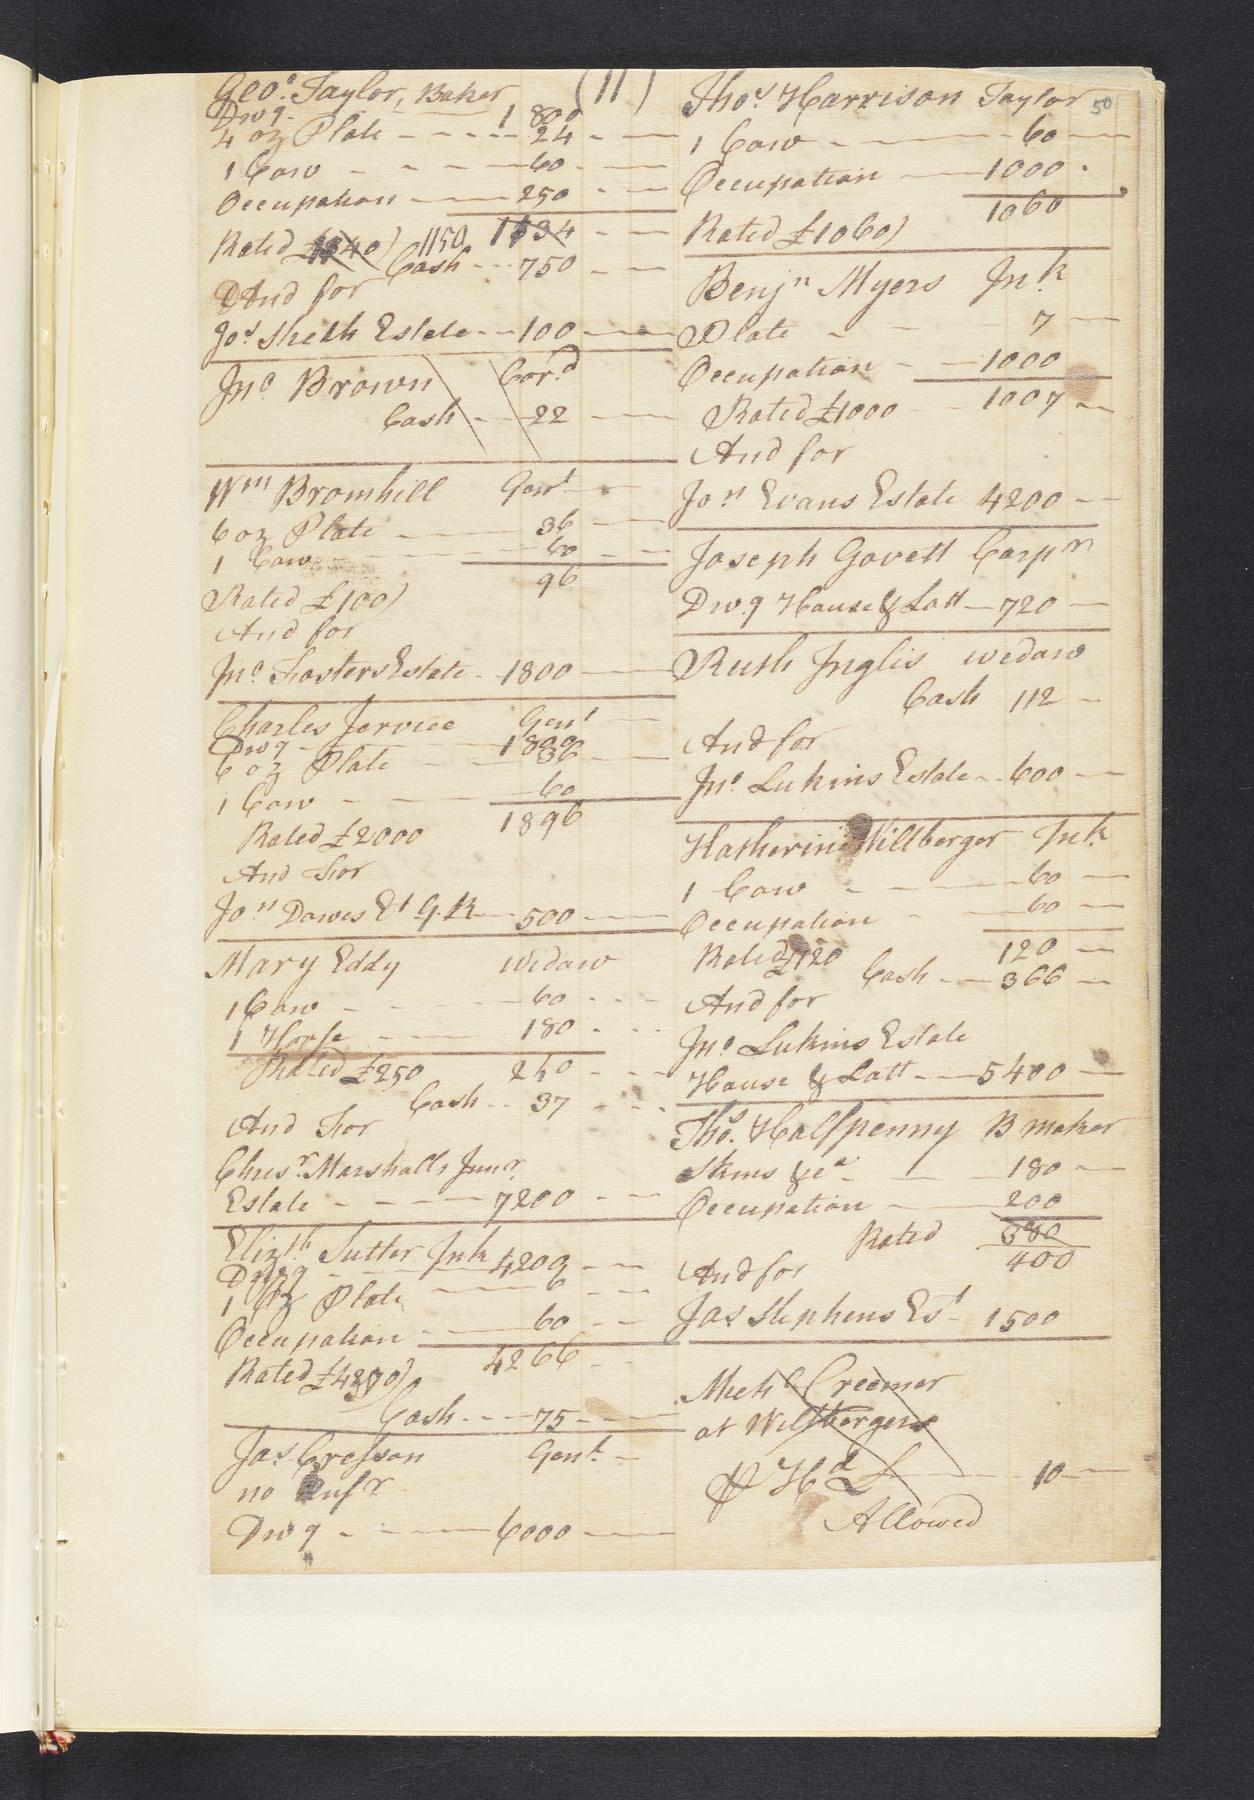 (11)
50
Geo: Taylor, Baker
Dwg - 1 800
4 oz Plate - - - - 24 - -
1 Cow - - - - 60 - -
Occupation - 250 - -
1134 - -
Rated £1140) 1150
Cash - - 750 - -
And for
Jos. Estate - - 100 -
Jno. Brown Cord
Cash - 22 -
Wm Bromhill Gent -
6 oz Plate - 36 -
1 Cow - 60 - -
96
Rated £100)
And for
Jno. Fosters Estate - 1800 -
Charles Jervice Gent -
Dwg - 1800
6 oz Plate - - 36 -
1 Cow - - 60
1896
Rated £2000
And For
Jon Dowes Et G.K - 500 -
Mary Eddy widaw
1 Cow - - - 60 - - -
1 Horse - - 180 - - -
Rated £250 240 - - -
Cash - - 37 - - -
And For
Chrisr. Marshalls Junr.
Estate - - - - 7200 - - -
Elizth Sutter Ink
Dwg - - 4200 - -
1 oz Plate - 6 - -
Occupation - 60 - -
4266 -
Rated £4270)
Cash - - - 75 -
Jas. Cresson Gent. -
no
Dwg - - 6000 -
Thos. Harrison Taylor
1 Cow - 60 -
Occupation - 1000 .
1060
Rated £1060)
Benjn Myers Ink
Plate - - 7 -
Occupation - 1000
Rated £1000 - 1007 -
And for
Jon Evans Estate 4200 -
Joseph Govett Carpn
Dw.g House & Lott - 720 -
Ruth Inglis widaw
Cash 112 -
And for
Jno. Lukins Estate - - 600 -
Katherine Wiltberger Ink
1 Cow - - 60 -
Occupation - 60 -
Rated £120 120 -
Cash - - 366 -
And for
Jno. Lukins Estate
House & Lott - - 5400 -
Tho. Halfpenny B maker
Skins &ca - - 180 -
Occupation - 200
Rated 380
400
And for
Jas Stephens Est - 1500
Michl Creemer
at Wiltbergers
10 -
Allowed